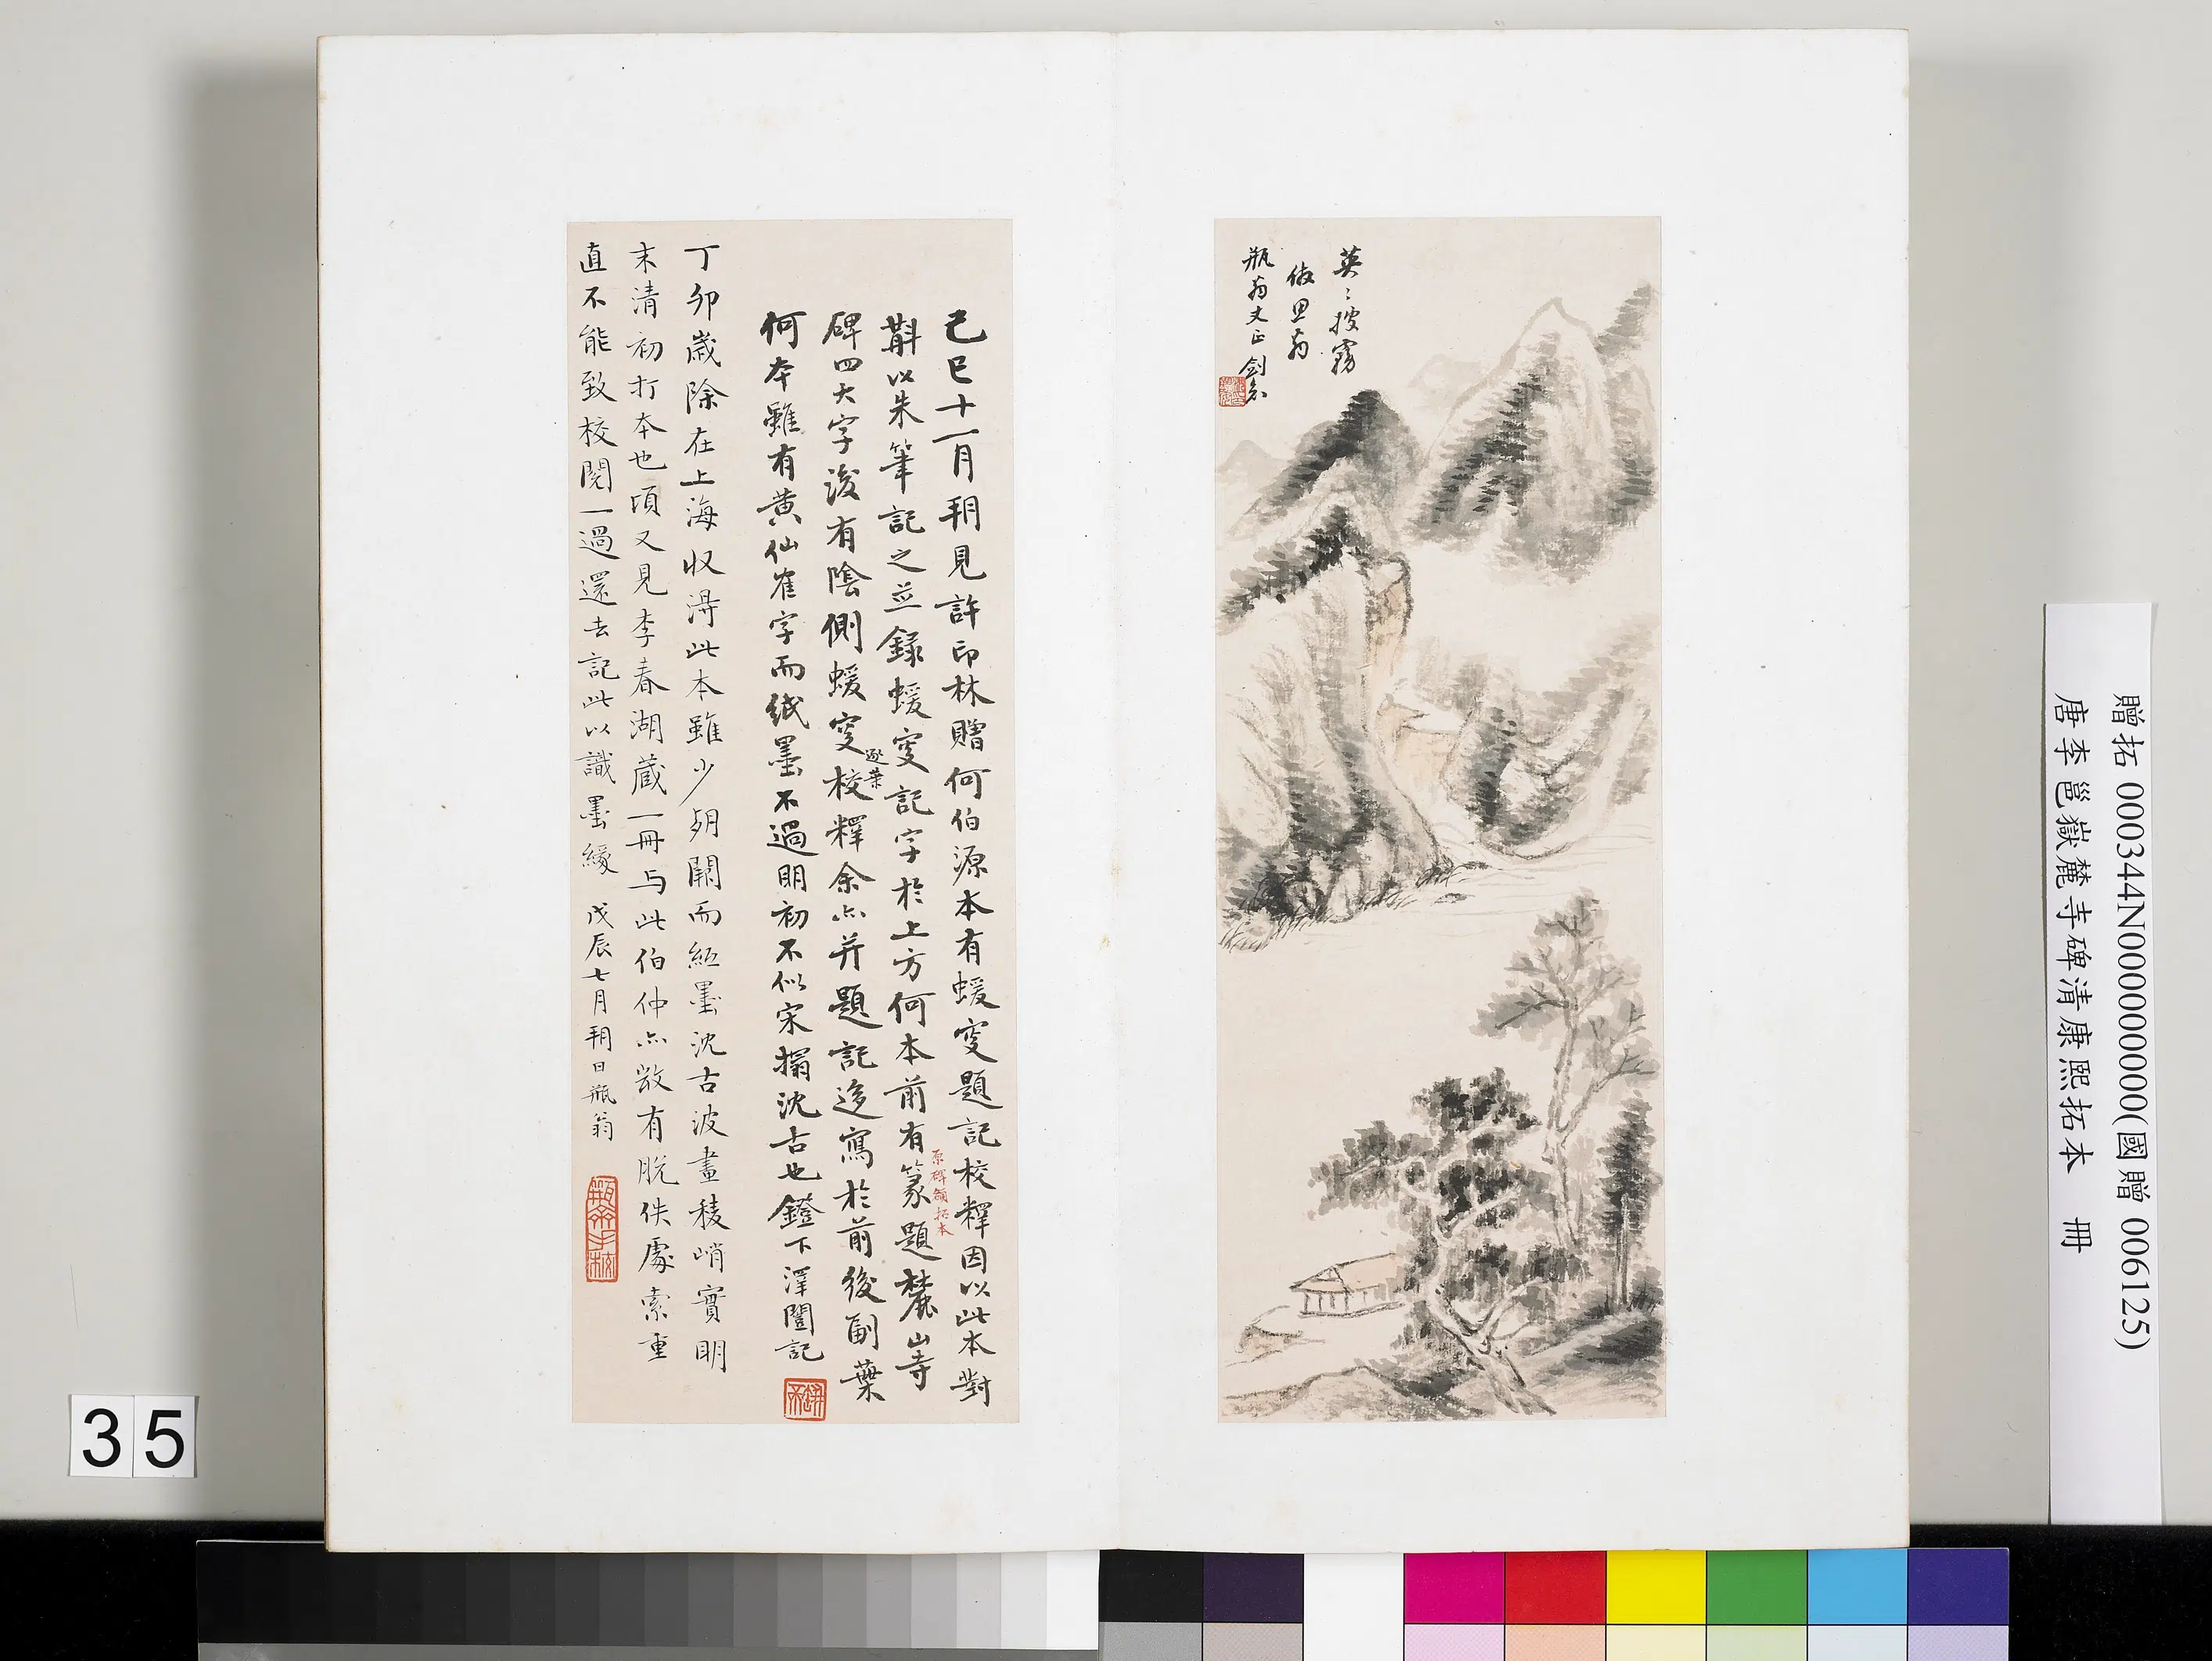 英〻披霧
倣思翁
瓶翁丈正 劍丞
己巳十一月朔見許印林贈何伯源本有蝯叟題記校釋因以此本對
斠以朱筆記之並錄蝯叟記字於上方何本前有篆題麓山寺
原碑額拓本
碑四大字後有陰側蝯叟校釋余亦并題記迻寫於前後副葉
逐葉
何本雖有黃仙崔字而紙墨不過明初不似宋搨沈古也鐙下澤闓記
丁卯歲除在上海收得此本雖少朔闕而紙墨沈古波畫稜峭實明
末清初打本也頃又見李春湖藏一冊与此伯仲亦微有脫佚處索重
直不能致校閱一過還去記此以識墨緣 戊辰七月朔日瓶翁
贈拓 000344N000000000(國贈 006125)
唐李邕嶽麓寺碑清康熙拓本 冊
35